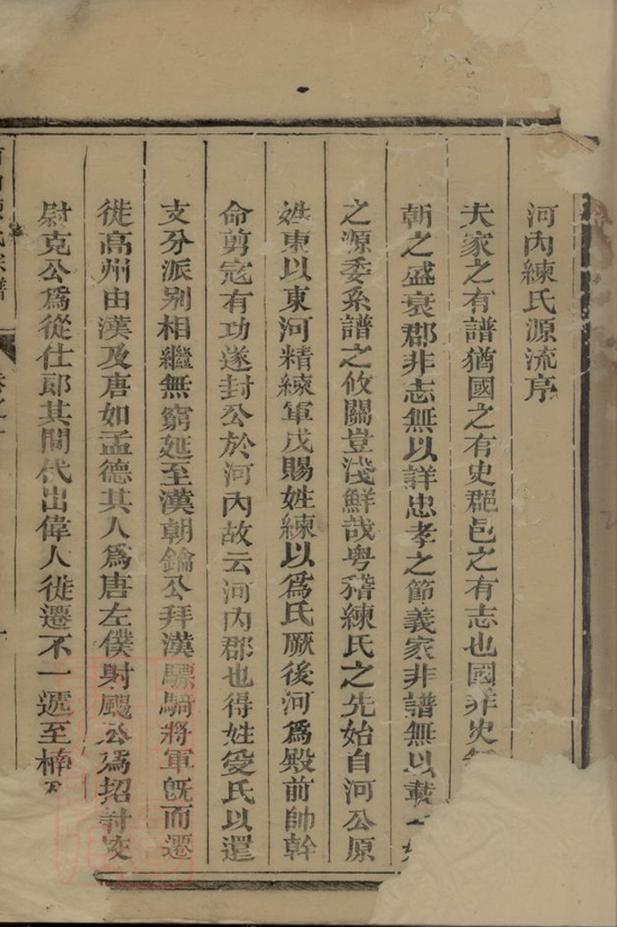 河內練氏源流序
夫家之有譜猶國之有史郡邑之有志也國非史無
朝之盛衰郡非志無以詳忠孝之節義家非譜無以載
之源委系譜之攸關豈淺鮮哉粤稽練氏之先始自河公原
姓東以東河精練軍戎賜姓練以爲氏厥後河爲殿前帥幹
命剪寇有功遂封公於河內故云河內郡也得姓受氏以還
支分派别相繼無窮延至漢朝鑰公拜漢驃騎將軍旣而遷
徙高州由漢及唐如孟德其人爲唐左僕射颶公爲招討按
尉克公爲從仕郎其間代出偉人徙遷不一遞至楠